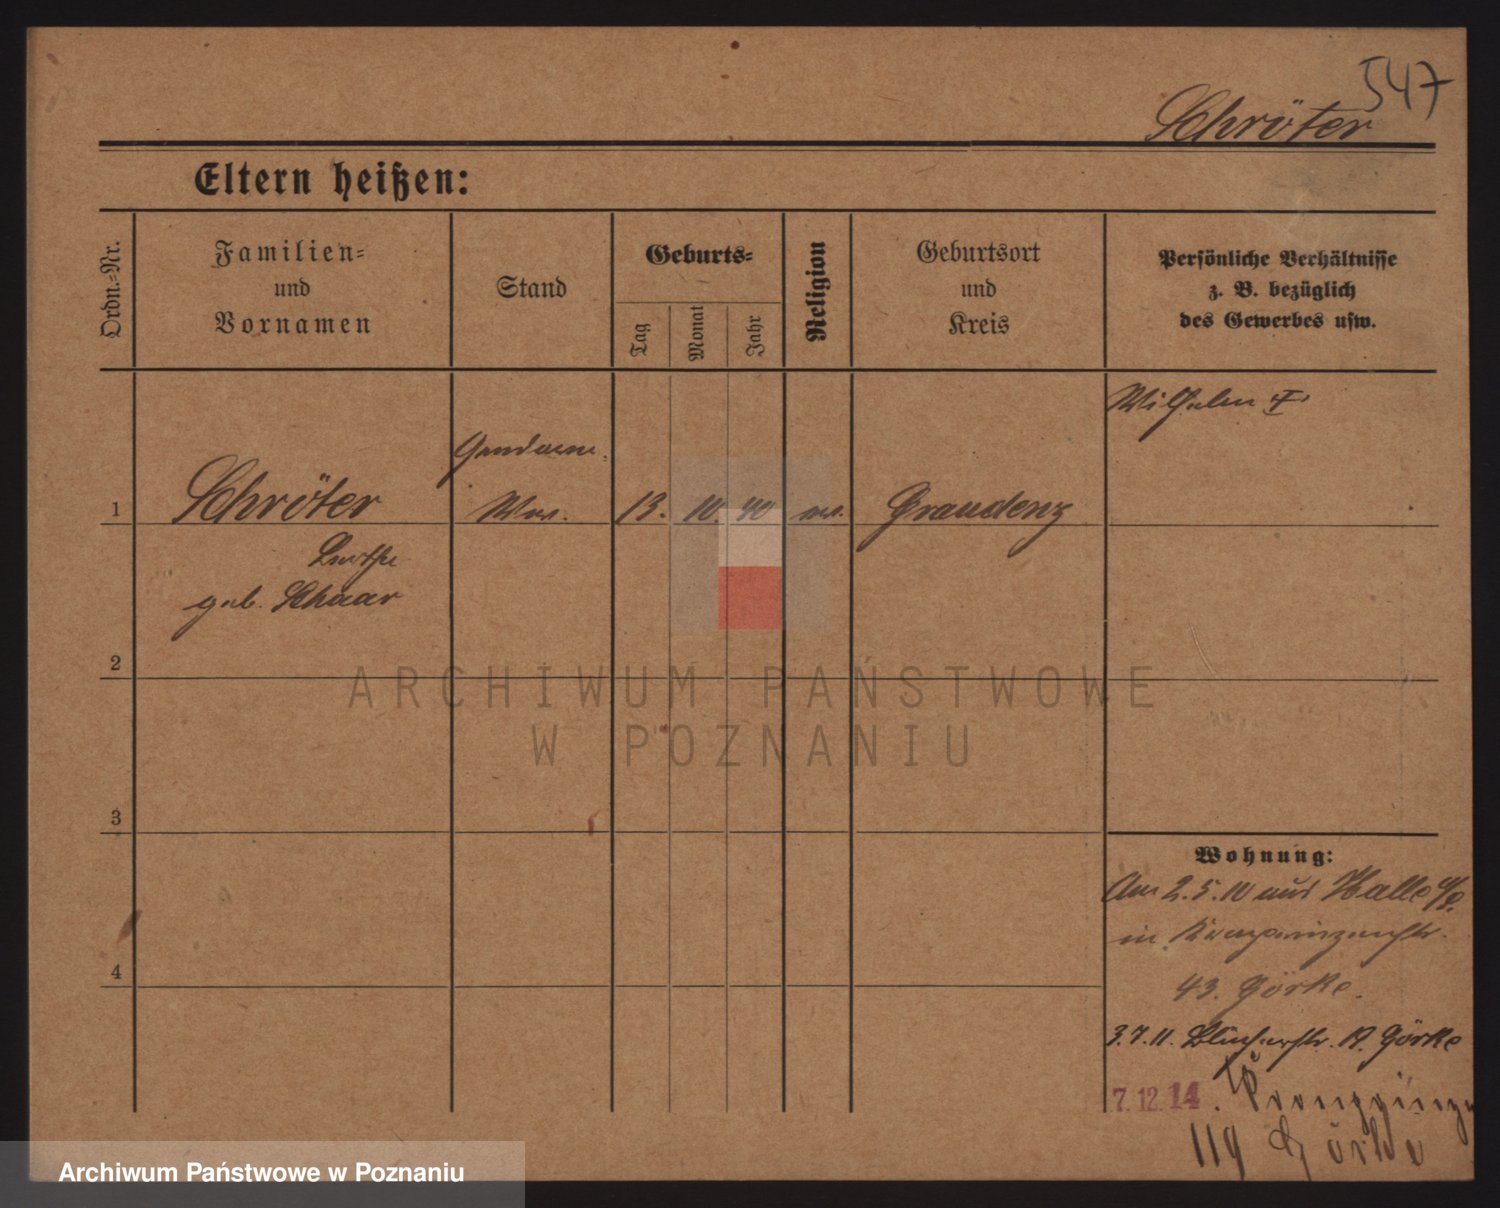 547
Schröter
Eltern heißen:
Ordn.-Nr.
Familien-
und
Vornamen
Stand
Geburts-
Tag
Monat
Jahr
Religion
Geburtsort
und
Kreis
Persönliche Verhältnisse
z. B. bezüglich
des Gewerbes usw.
Wilhelm †
Gendarm.
1 Schröter Wwe. 13. 10. 40 ev. Graudenz
geb. Schaar
2
3
4
Wohnung:
Am 2.5.10 aus Halle a/S.
in Kronprinzenstr.
43. Görke.
3.7.11. Blücherstr. 19. Görke
7.12.14. Kronprinzen
119 Görke
ARCHIWUM PAŃSTWOWE
W POZNANIU
Archiwum Państwowe w Poznaniu